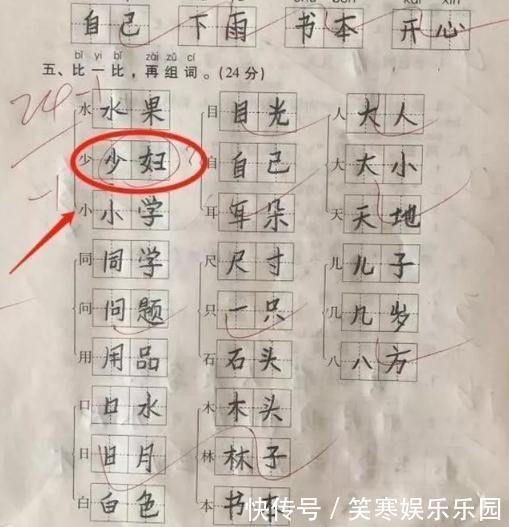 自己 下雨 书本 开心
bǐ yi bǐ zài zǔ cí
五、比一比，再组词。(24分)
24-1
水 水果 目 目光 人 大人
少 少妇 自 自己 大 大小
-1
小 小学 耳 耳朵 天 天地
同 同学 尺 尺寸 儿 儿子
问 问题 只 一只 几 几岁
用 用品 石 石头 八 八方
口 口水 木 木头
日 日月 林 林子
白 白色 本 书本
快传号／笑寒娱乐乐园